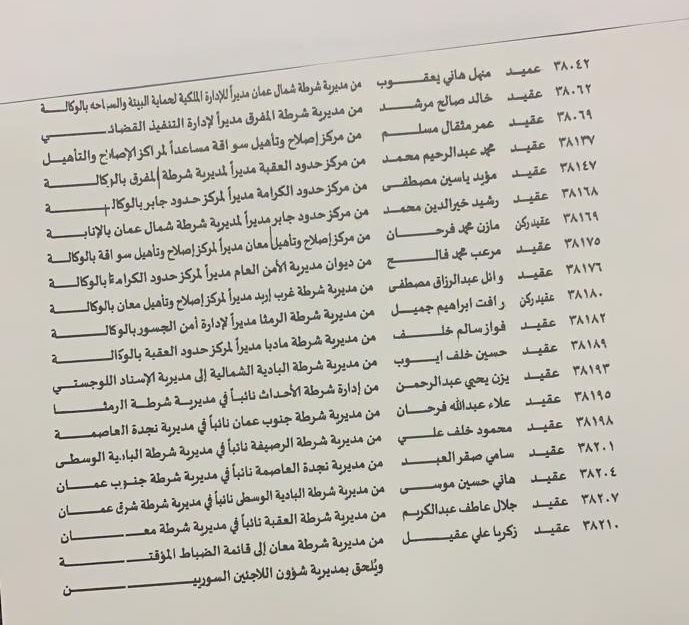 ٣٨٠٤٢ عميد منهل هاني يعقوب من مديرية شرطة شمال عمان مديراً للإدارة الملكية لحماية البيئة والسياحه بالوكالة
٣٨٠٦٢ عقيد خالد صالح مرشد من مديرية شرطة المفرق مديراً لإدارة التنفيذ القضائي
٣٨٠٦٩ عقيد عمر مثقال مسلم من مركز إصلاح وتأهيل سواقة مساعداً لمراكز الإصلاح والتأهيل
٣٨١٣٧ عقيد محمد عبدالرحيم محمد من مركز حدود العقبة مديراً لمديرية شرطة المفرق بالوكالة
٣٨١٤٧ عقيد مؤيد ياسين مصطفى من مركز حدود الكرامة مديراً لمركز حدود جابر بالوكالة
٣٨١٦٨ عقيد رشيد خيرالدين محمد من مركز حدود جابر مديراً لمديرية شرطة شمال عمان بالإنابة
٣٨١٦٩ عقيد ركن مازن محمد فرحان من مركز إصلاح وتأهيل معان مديراً لمركز إصلاح وتأهيل سواقة بالوكالة
٣٨١٧٥ عقيد مرعب محمد فالح من ديوان مديرية الأمن العام مديراً لمركز حدود الكرامة بالوكالة
٣٨١٧٦ عقيد وائل عبدالرزاق مصطفى من مديرية شرطة غرب إربد مديراً لمركز إصلاح وتأهيل معان بالوكالة
٣٨١٨٠ عقيد ركن رافت ابراهيم جميل من مديرية شرطة الرمثا مديراً لإدارة أمن الجسور بالوكالة
٣٨١٨٢ عقيد فواز سالم خلف من مديرية شرطة مادبا مديراً لمركز حدود العقبة بالوكالة
٣٨١٨٩ عقيد حسين خلف ايوب من مديرية شرطة البادية الشمالية إلى مديرية الإسناد اللوجستي
٣٨١٩٣ عقيد يزن يحيى عبدالرحمن من إدارة شرطة الأحداث نائباً في مديرية شرطة الرمثا
٣٨١٩٥ عقيد علاء عبدالله فرحان من مديرية شرطة جنوب عمان نائباً في مديرية نجدة العاصمة
٣٨١٩٨ عقيد محمود خلف علي من مديرية شرطة الرصيفة نائباً في مديرية شرطة البادية الوسطى
٣٨٢٠١ عقيد سامي صقر العبد من مديرية نجدة العاصمة نائباً في مديرية شرطة جنوب عمان
٣٨٢٠٤ عقيد هاني حسين موسى من مديرية شرطة البادية الوسطى نائباً في مديرية شرطة شرق عمان
٣٨٢٠٧ عقيد جلال عاطف عبدالكريم من مديرية شرطة العقبة نائباً في مديرية شرطة معان
٣٨٢١٠ عقيد زكريا علي عقيل من مديرية شرطة معان إلى قائمة الضباط المؤقتة
ويُلحق بمديرية شؤون اللاجئين السوريين